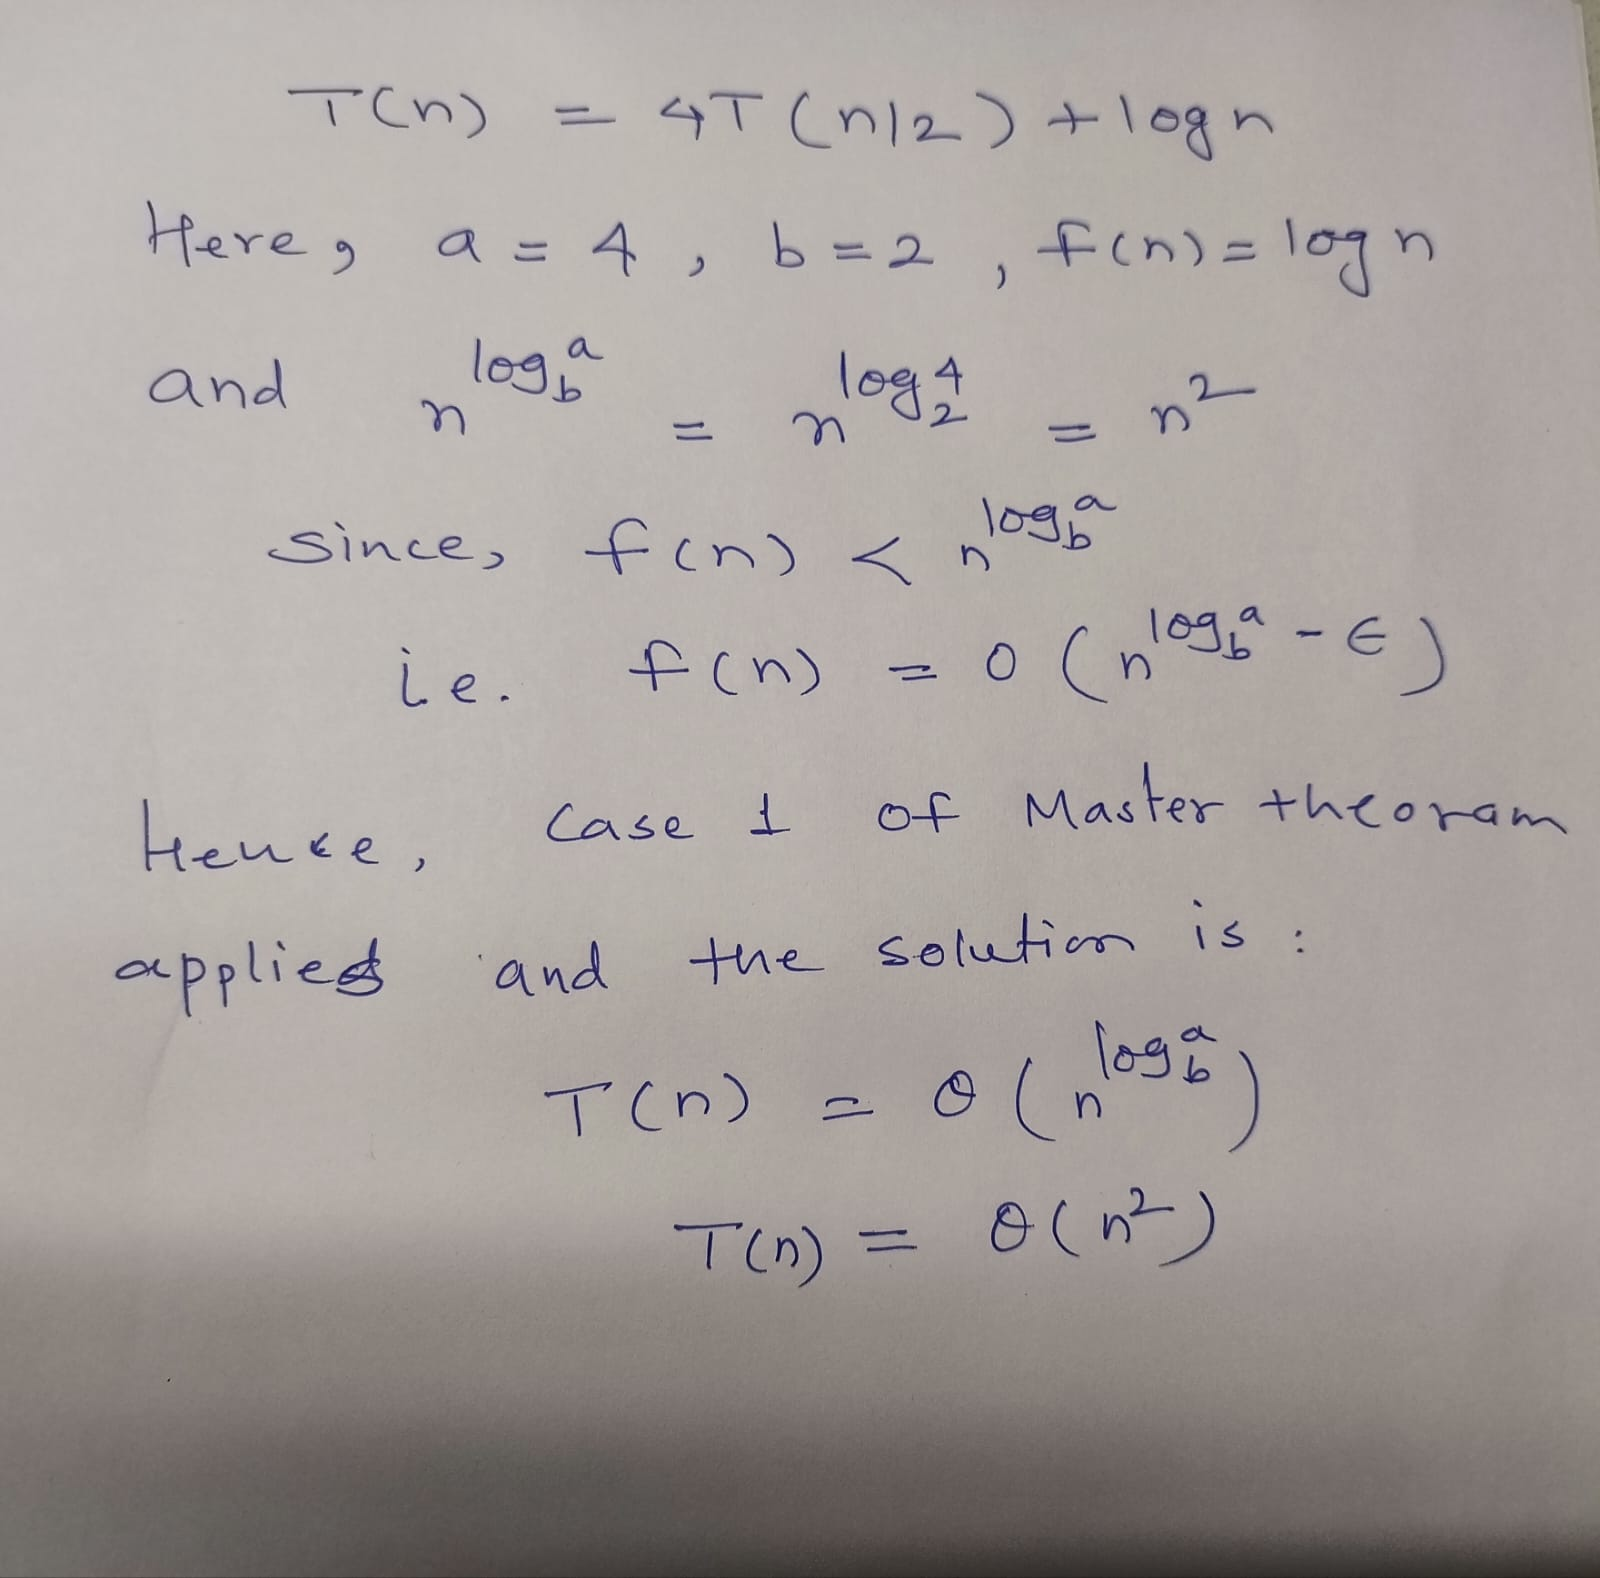 T(n) = 4T(n/2) + log n
Here, a = 4, b = 2, f(n) = log n
and n^{log_b a} = n^{log_2 4} = n^2
since, f(n) < n^{log_b a}
i.e. f(n) = O(n^{log_b a - ϵ})
Hence, Case 1 of Master theoram
applied and the solution is :
T(n) = θ(n^{log_b a})
T(n) = θ(n^2)